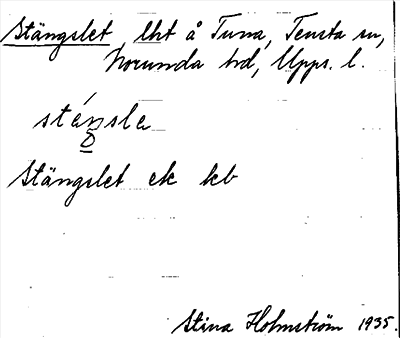 Stängslet lht å Tuna, Tensta sn,
Norunda hd, Upps. l.
sténsla
Stängslet ek kb
Stina Holmström 1935.